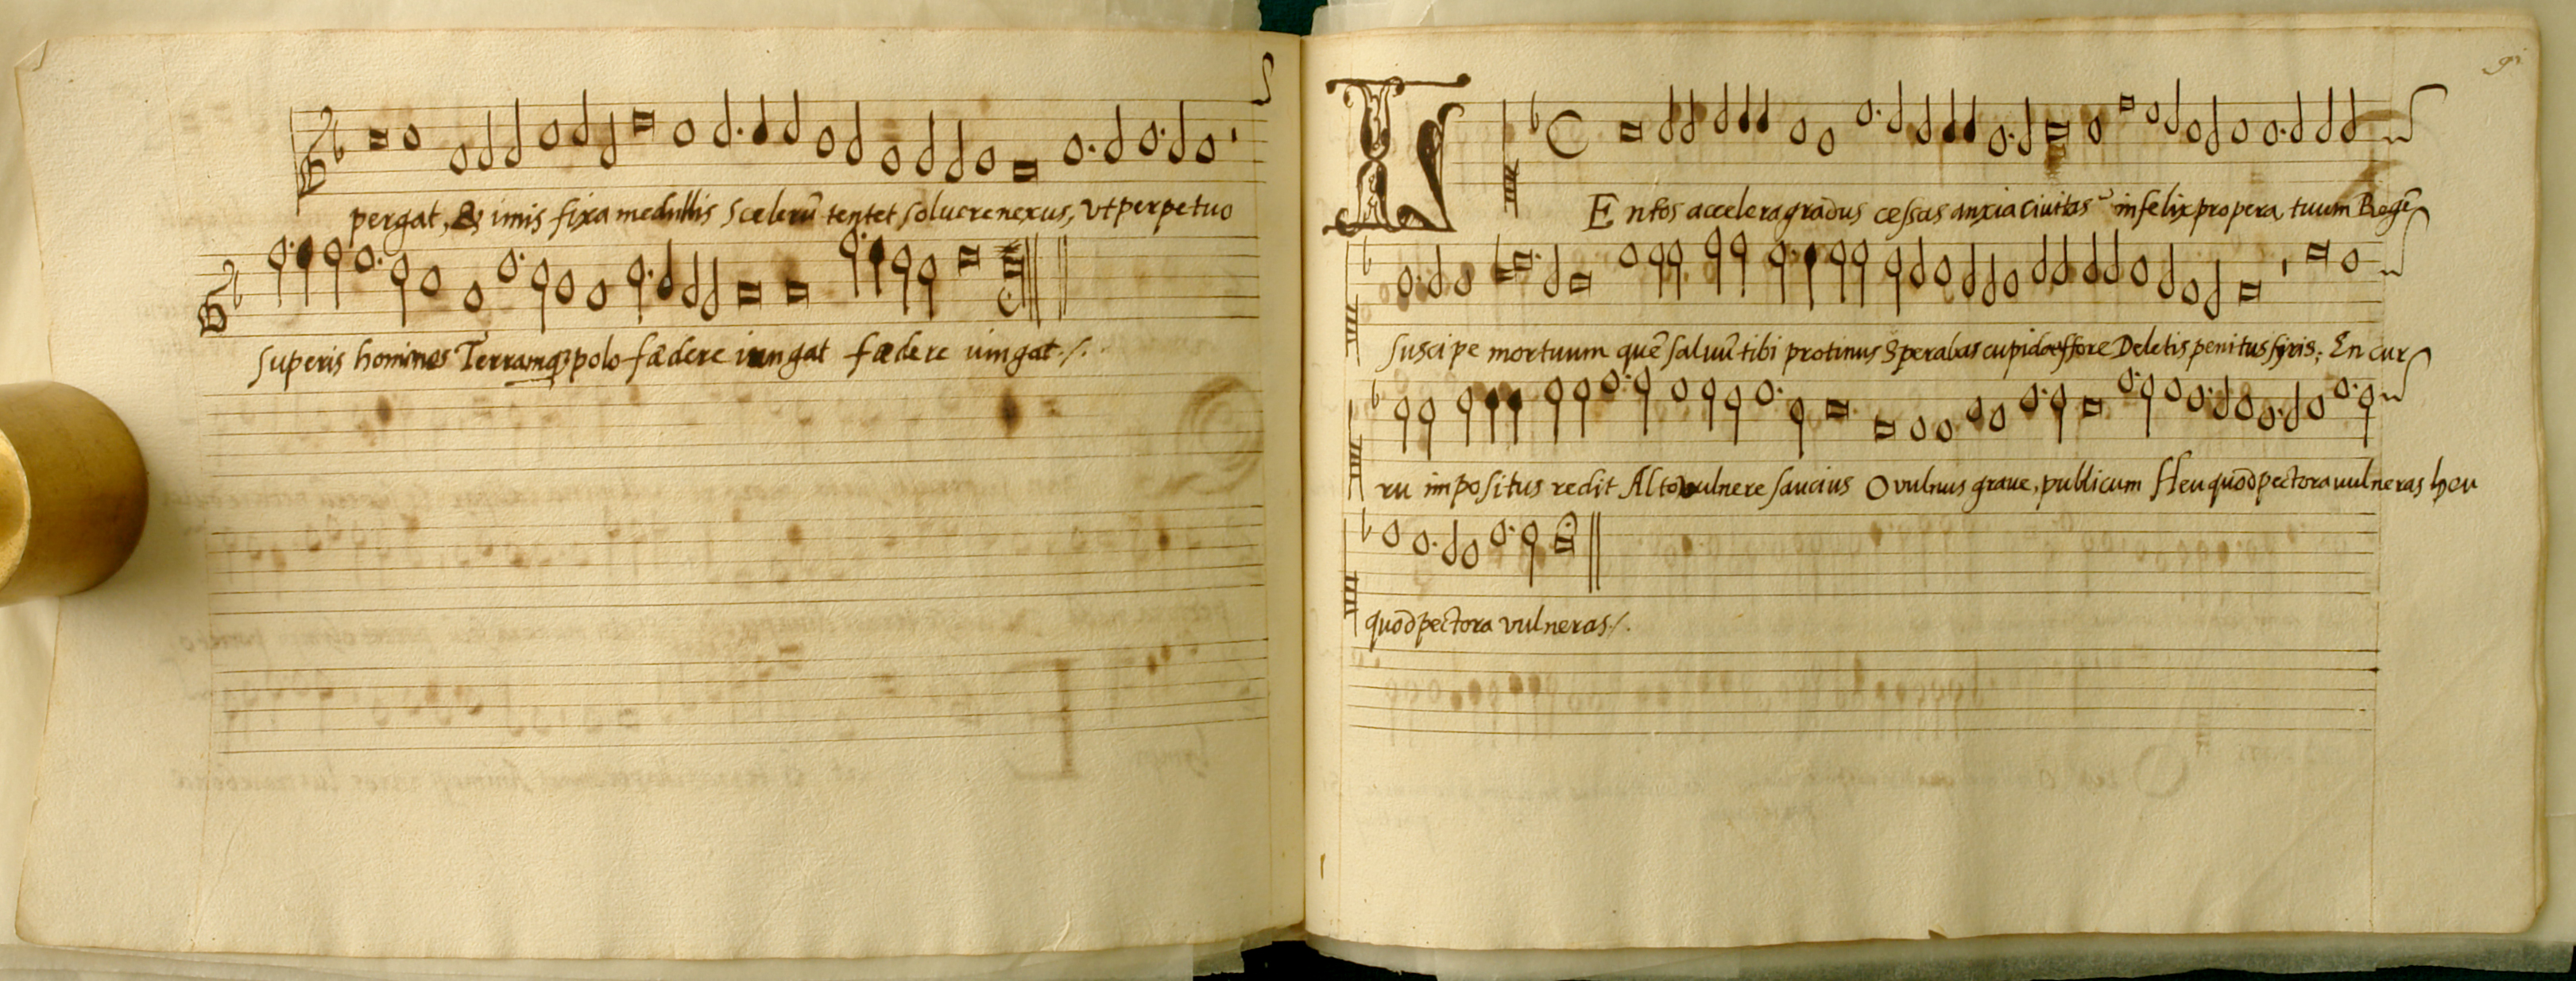 pergat, & imis fixa medullis scelerũ tentet soluere nexus, Vt perpetuo
Superis homines Terramq₃ polo fædere iungat fædere iungat./.
9
LEntos accelera gradus cessas anxia ciuitas infelix propera tuum Regẽ
suscipe mortuum quẽ saluũ tibi protinus Sperabas cupido effore Deletis penitus syris; En cur
ru impositus redit Alto vulnere saucius O vulnus graue, publicum Heu quod pectora vulneras heu
quod pectora vulneras./.